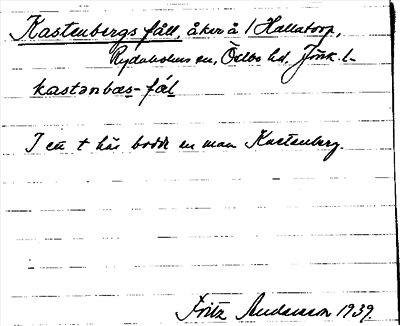 Kastenbergs fåll, åker å 1 Hallatorp,
Rydaholms sn, Östbo hd, Jönk. l.
kastənbæs-fál
I ett t här bodde en man Kastenberg.
Fritz Andersson 1939.